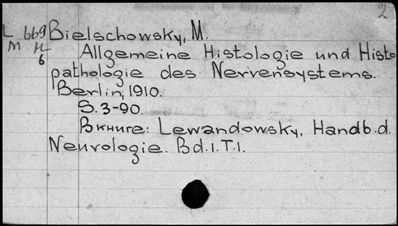 2
L 669 Bielschowsky, M.
M H Allgemeine Histologie und Histo-
6 pathologie des Nervensystems.
Berlin, 1910.
S. 3-90.
В книге: Lewandowsky, Handb. d.
Neurologie. Bd. 1. T. 1.